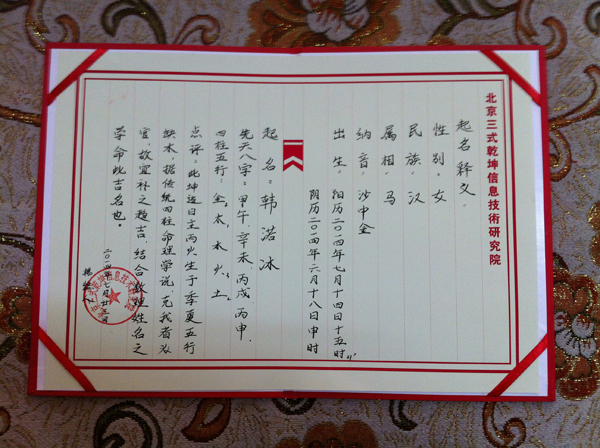 北京三式乾坤信息技術研究院
起名释义.
性别:女
民族:汉
属相:马
纳音:沙中金
出生:阳历二〇一四年七月十四日十五时
阴历二〇一四年六月十八日申时
起名:韩渃冰
先天八字:甲午,辛未,丙戌,丙申.
四柱五行:金,木,火,土
点评:此坤造日主丙火生于季夏五行
缺水,据传统四柱命理学说,克我者为
官,故宜补之趋吉.结合数理姓名之
学命此吉名也。
二〇一四年七月廿